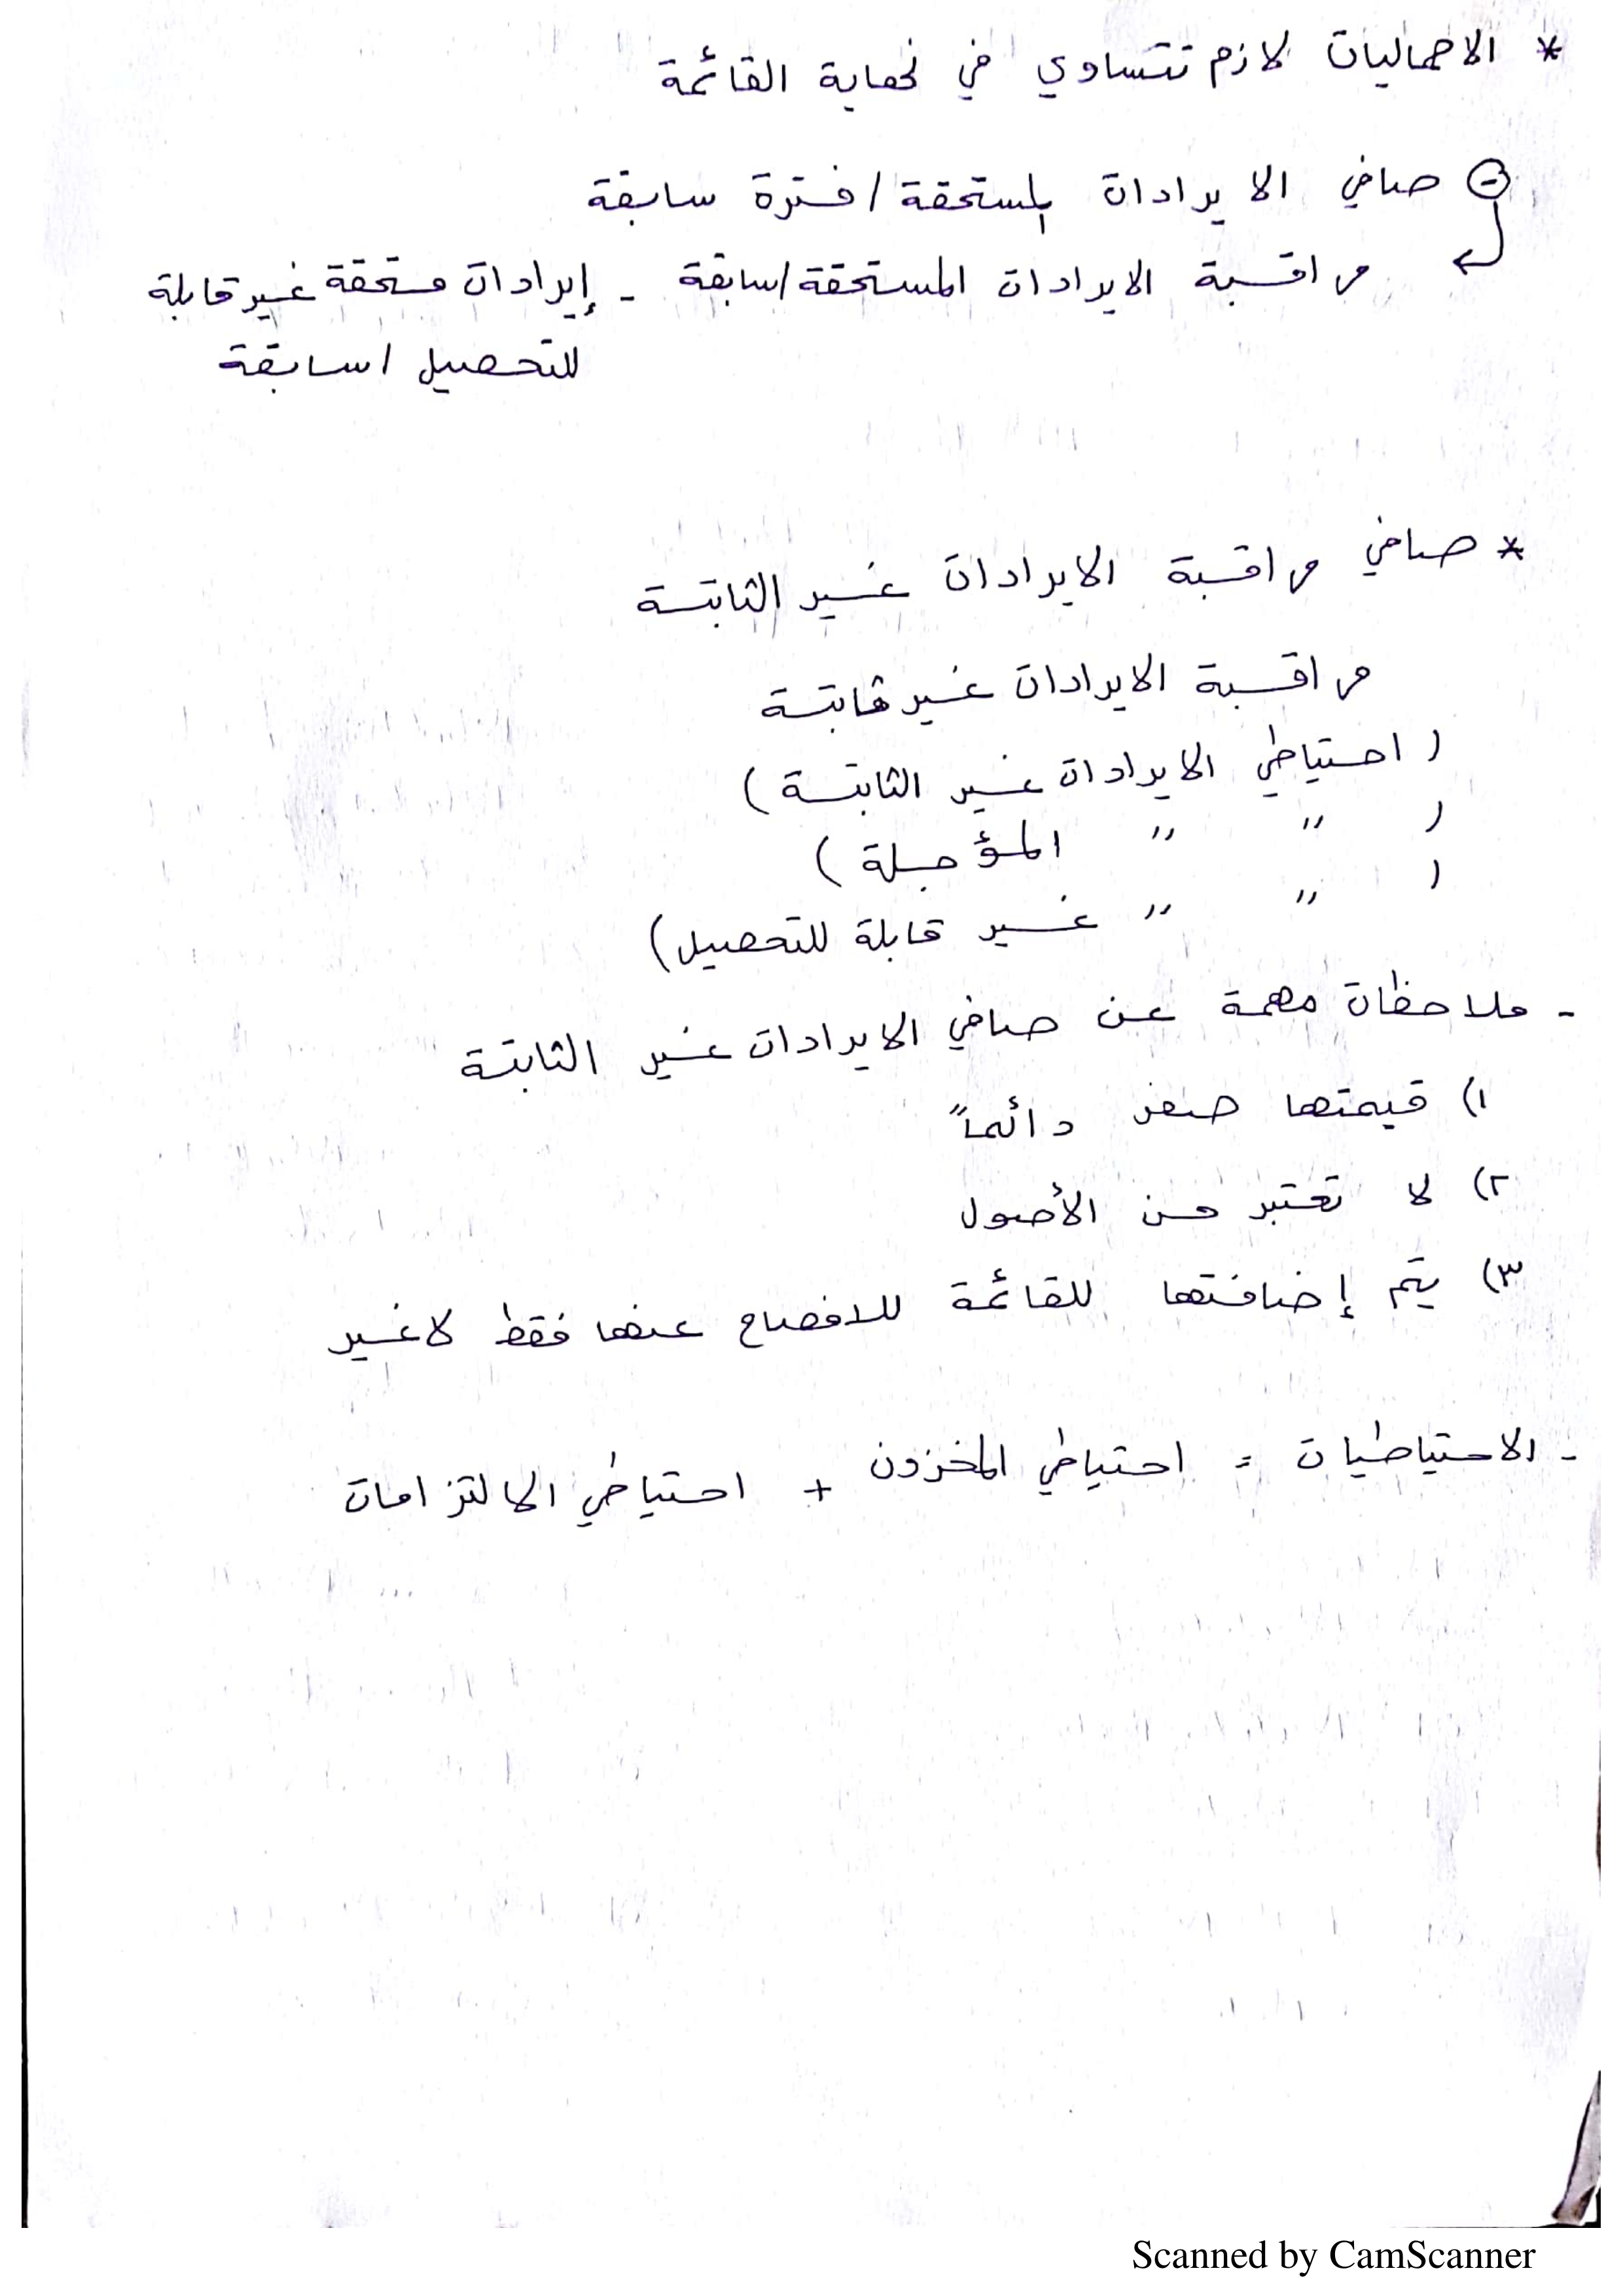 * الاجماليات لازم تتساوي في نهاية القائمة
صافي الايرادات المستحقة/فترة سابقة
مراقبة الايرادات المستحقة/سابقة - إيرادات مستحقة غير قابلة
للتحصيل / سابقة
* صافي مراقبة الايرادات غير الثابتة
مراقبة الايرادات غير ثابتة
( احتياطي الايرادات غير الثابتة )
( " " المؤجلة )
( " " غير قابلة للتحصيل)
- ملاحظات مهمة عن صافي الايرادات غير الثابتة
١) قيمتها صفر دائماً
٢) لا تعتبر من الأصول
٣) يتم إضافتها للقائمة للافصاح عنها فقط لاغير
- الاحتياطيات = احتياطي المخزون + احتياطي الالتزامات
Scanned by CamScanner